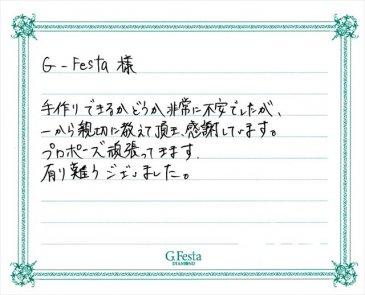 G-Festa 様
手作りできるかどうか非常に不安でしたが、
一から親切に教えて頂き、感謝しています。
プロポーズ頑張ってきます。
有り難うございました。
G.Festa
DIAMOND